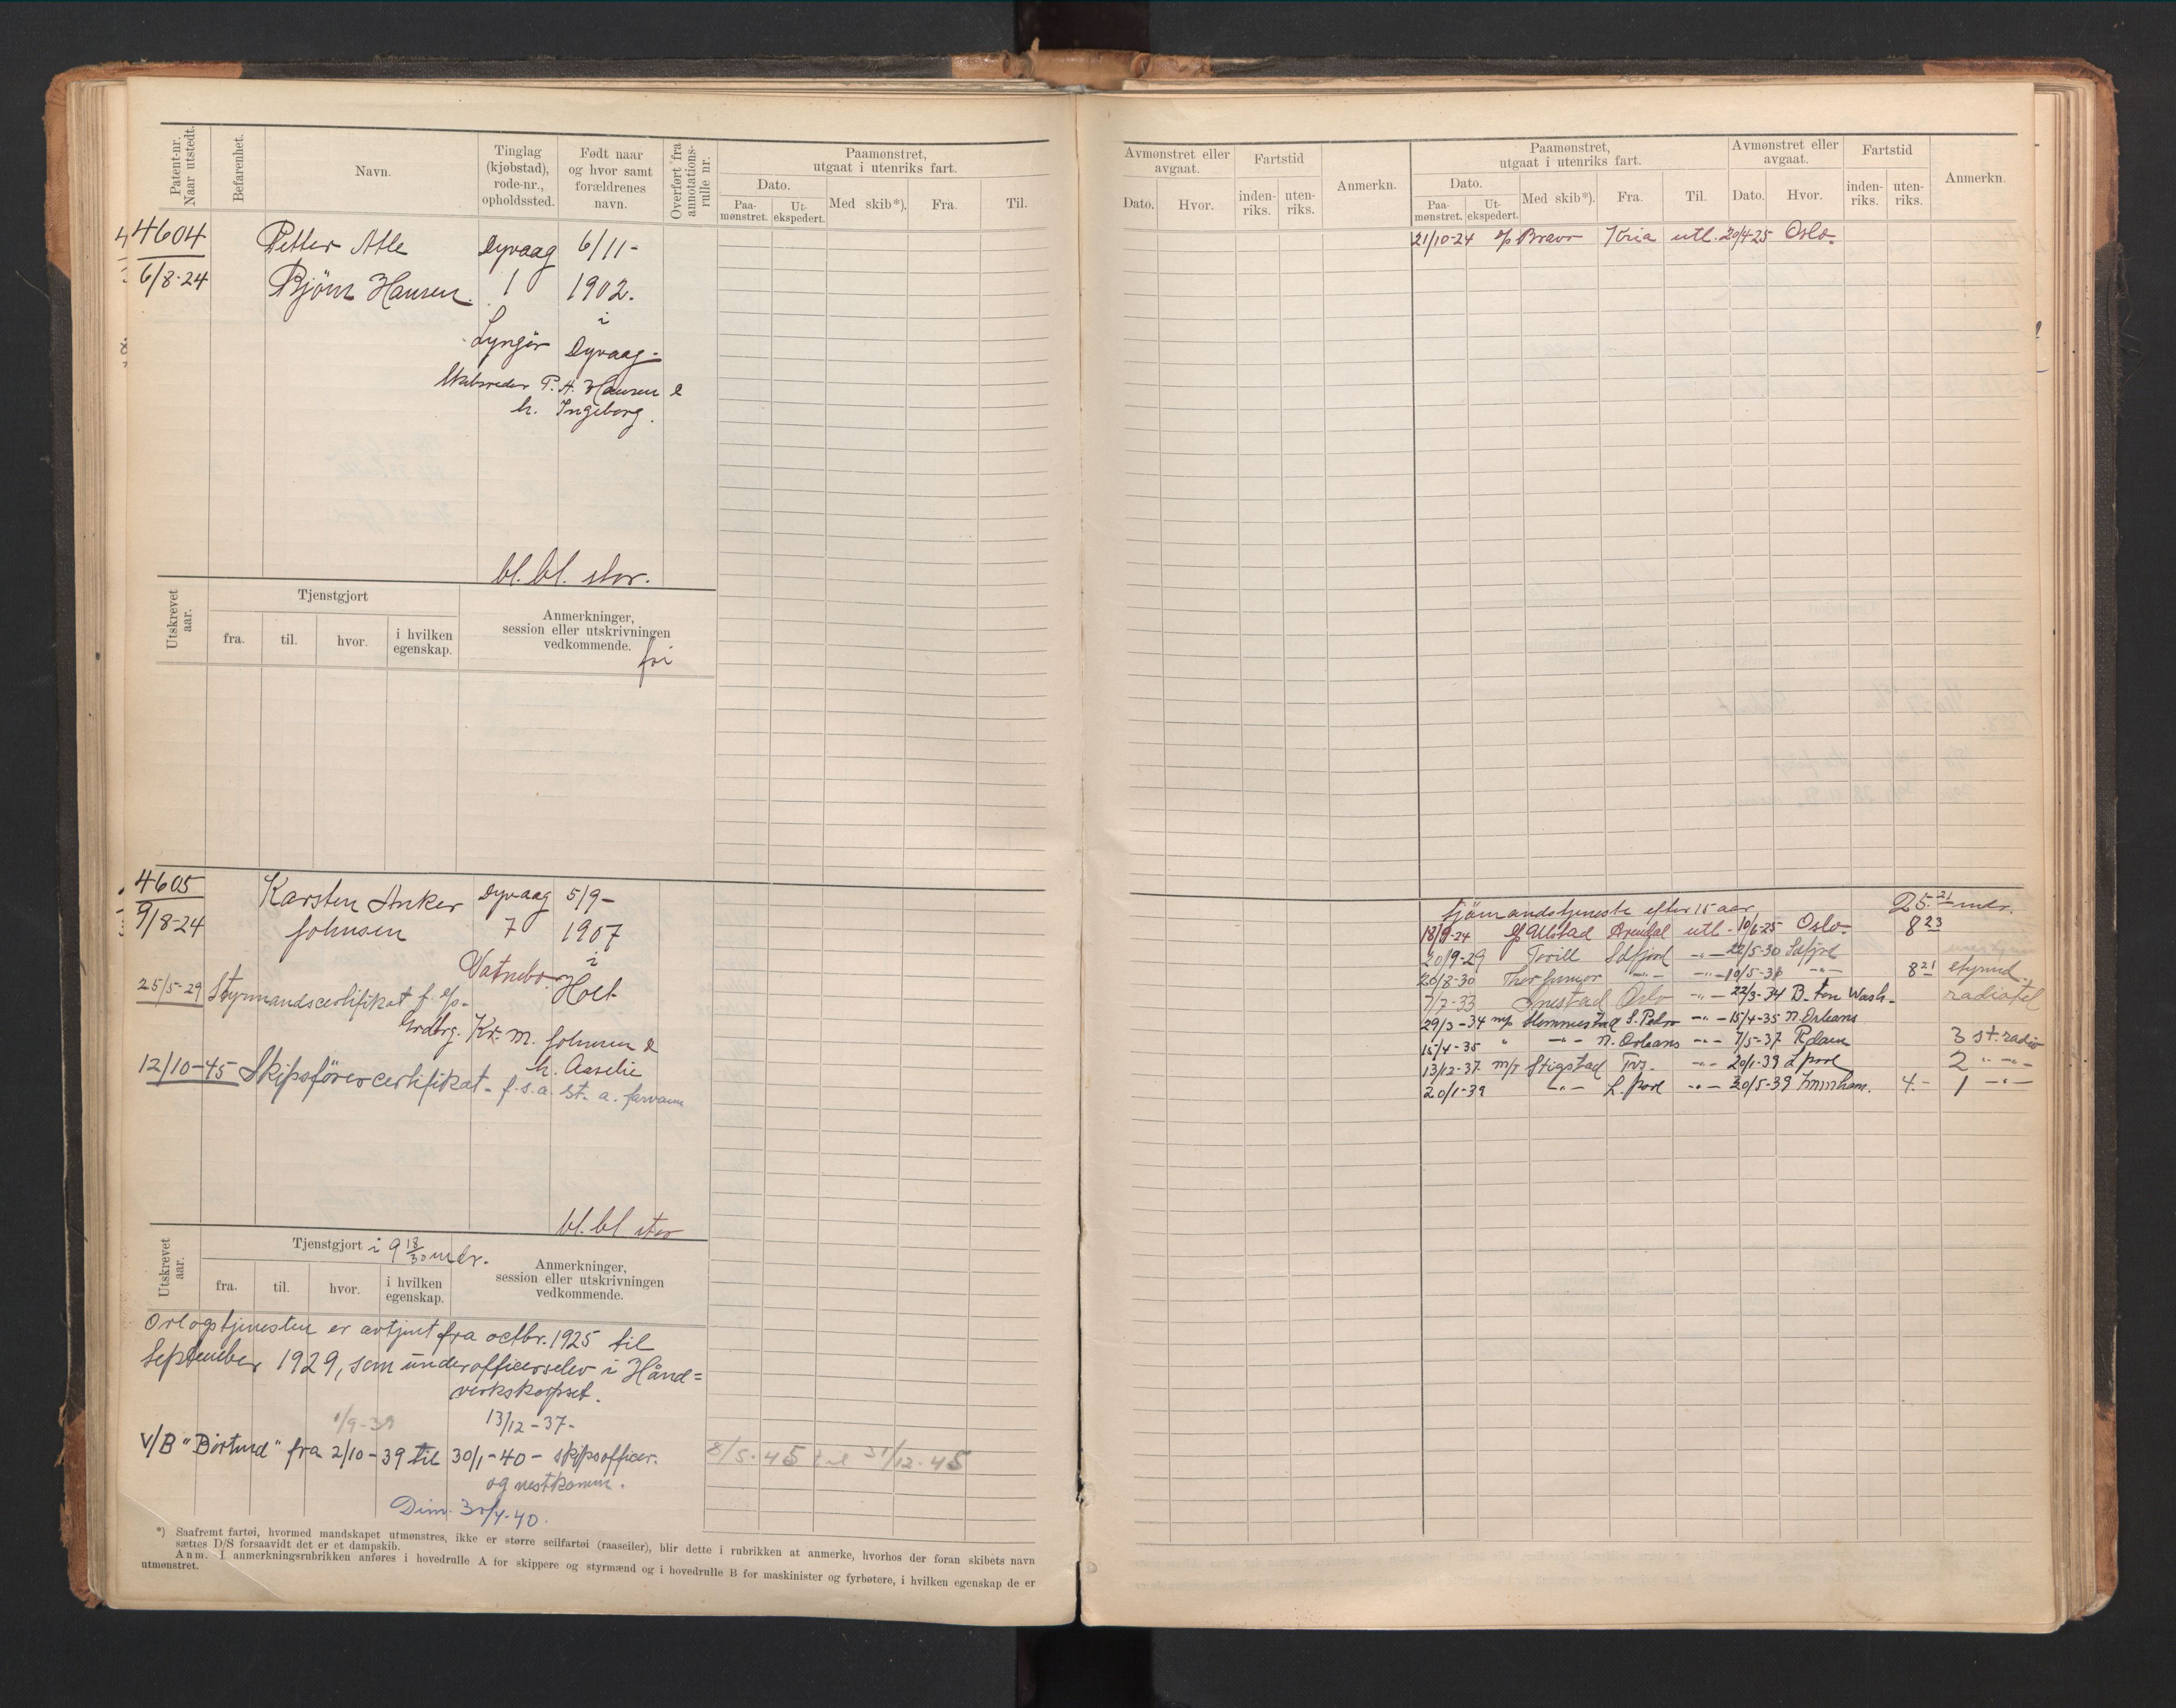 Patent-nr. Naar utstedt.
Befarenhet.
Navn.
Tinglag (kjøbstad), rode-nr., opholdssted.
Født naar og hvor samt forældrenes navn.
Overført fra annotations-rulle nr.
Paamønstret, utgaat i utenriks fart.
Dato.
Paa-mønstret.
Ut-ekspedert.
Med skib*).
Fra.
Til.
4604
6/8-24
Petter Atle
Bjørn Hansen.
Dyvaag
1
Lyngør
6/11-
1902.
i
Dyvaag-
Skibsreder P. A. Hansen &
h. Ingeborg.
bl. bl. stor.
Utskrevet aar.
Tjenstgjort
fra.
til.
hvor.
i hvilken egenskap.
Anmerkninger, session eller utskrivningen vedkommende.
fri
4605
9/8-24
Karsten Anker
Johnsen
Dyvaag
7
Vatnebo
5/9-
1907
i
Holt
25/5-29 Styrmandscertifikat f. s/s-
Grdbrg. Kr. M. Johnsen &
h. Aaselie
12/10-45 Skipsførercertifikat - f.s.a. st. a. farvann
bl. bl stor
Utskrevet aar.
Tjenstgjort i 9 18/30 mdr.
fra.
til.
hvor.
i hvilken egenskap.
Anmerkninger, session eller utskrivningen vedkommende.
Orlogstjenesten er avtjent fra octbr. 1925 til
September 1929, som underofficerselev i Hånd=
verkskorpset.
1/9-39
13/12-37-
V/B "Børtind" fra 2/10-39 til 30/1-40- skipsofficer.
og nestkomm.
8/5-45 til 31/12-45
Dim. 30/4-40.
*) Saafremt fartøi, hvormed mandskapet utmønstres, ikke er større seilfartøi (raaseiler), blir dette i rubrikken at anmerke, hvorhos der foran skibets navn
sættes D/S forsaavidt det er et dampskib.
Anm. I anmerkningsrubrikken anføres i hovedrulle A for skippere og styrmænd og i hovedrulle B for maskinister og fyrbøtere, i hvilken egenskap de er
utmønstret.
Avmønstret eller avgaat.
Dato.
Hvor.
Fartstid
inden-riks.
uten-riks.
Anmerkn.
Paamønstret, utgaat i utenriks fart.
Dato.
Paa-mønstret.
Ut-ekspedert.
Med skib*).
Fra.
Til.
Avmønstret eller avgaat.
Dato.
Hvor.
Fartstid
inden-riks.
uten-riks.
Anmerkn.
21/10-24 s/s Bravo Kria utl. 20/4-25 Oslo-
Sjømandstjeneste efter 15 aar 25.21 mdr.
18/9-24 s/s Ulstad Arendal utl- 10/6-25 Oslo- 8 23
20/9-29 Torill Sdfjord -"- 22/5-30 Sdfjrd
20/8-30 Thor Junior -"- -"- 10/5-31 -"- 8 21 styrmd.
7/7-33 Inestad Oslo -"- 22/3-34 B-ton Wash- radiotel
29/3-34 m/s Hemmestad S. Pedro -"- 15/4-35 N. Orleans
15/4-35 " -"- N. Orleans -"- 7/5-37 Rdam 3 st. radio
13/12-37 m/T Stigstad -"- 20/1-39 L.pool 2 -"-
20/1-39 -"- L.pool -"- 20/5-39 Immham. 4.- 1 -"-